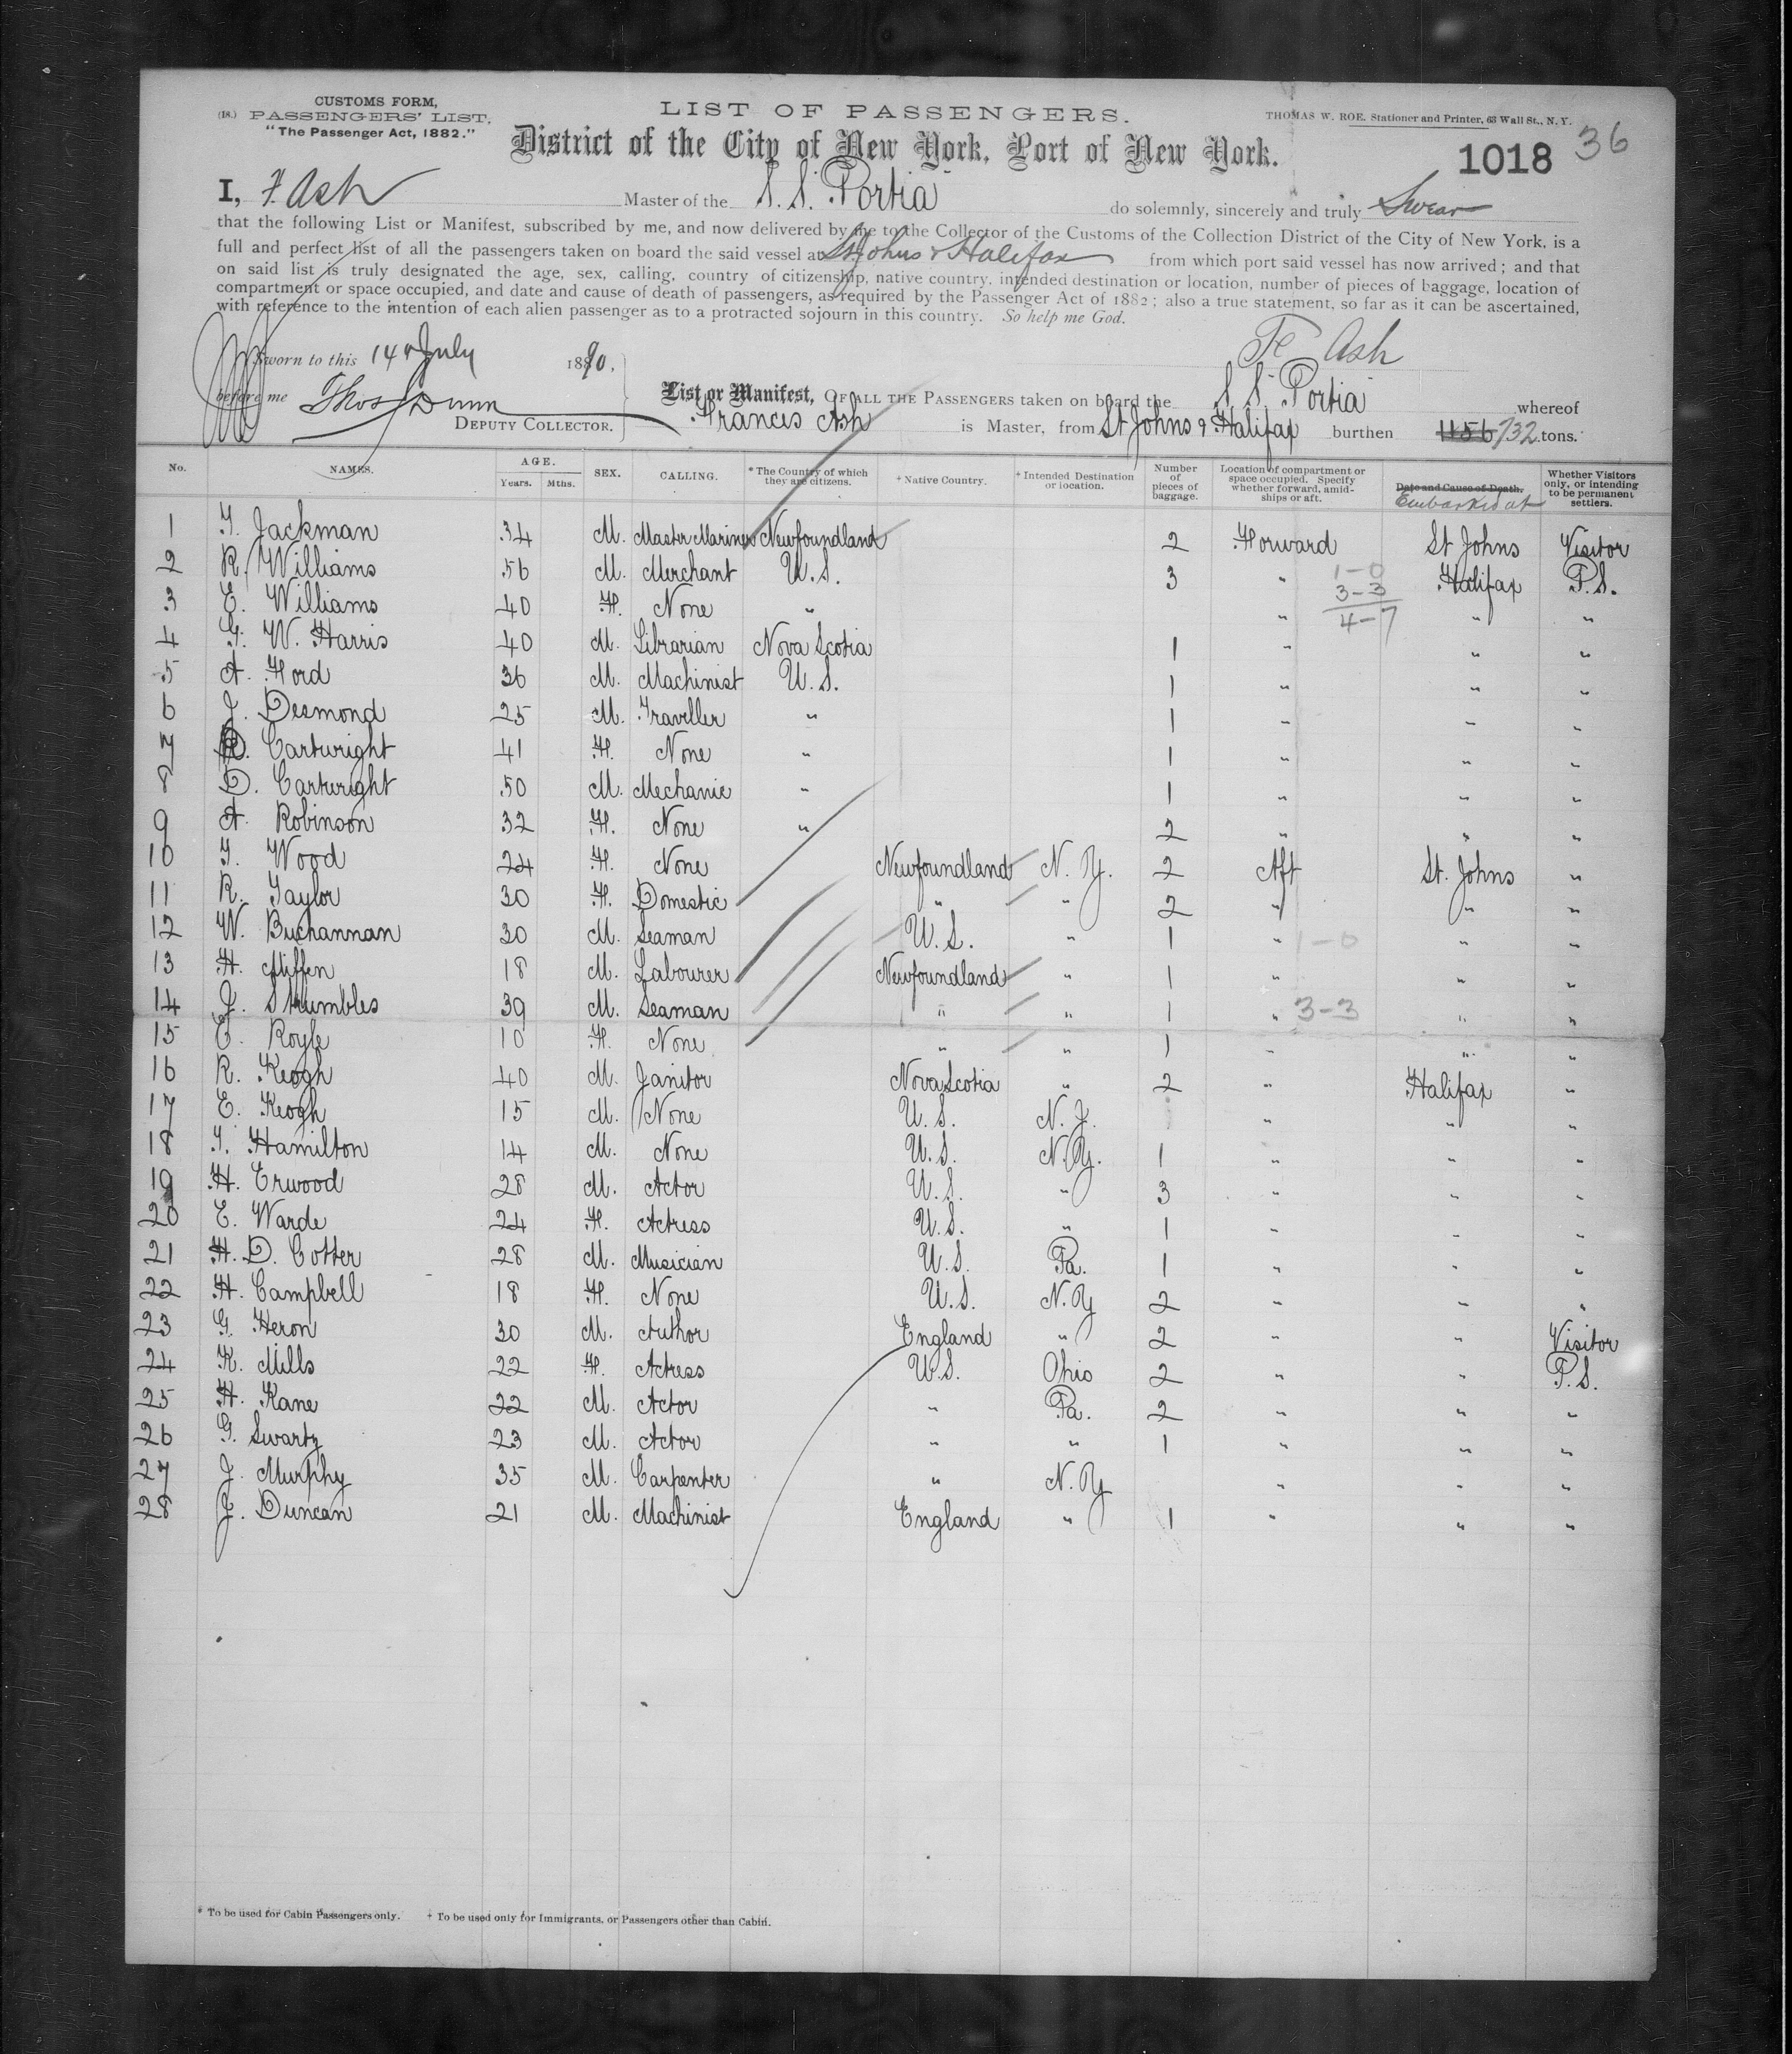 CUSTOMS FORM,
(18.) PASSENGERS' LIST.
"The Passenger Act, 1882."
LIST OF PASSENGERS.
THOMAS W. ROE, Stationer and Printer, 63 Wall St., N. Y.
36
District of the City of New York, Port of New York.
1018
I, F. Ash Master of the S. S. Portia do solemnly, sincerely and truly Swear
that the following List or Manifest, subscribed by me, and now delivered by me to the Collector of the Customs of the Collection District of the City of New York, is a
full and perfect list of all the passengers taken on board the said vessel at St Johns & Halifax from which port said vessel has now arrived; and that
on said list is truly designated the age, sex, calling, country of citizenship, native country, intended destination or location, number of pieces of baggage, location of
compartment or space occupied, and date and cause of death of passengers, as required by the Passenger Act of 1882; also a true statement, so far as it can be ascertained,
with reference to the intention of each alien passenger as to a protracted sojourn in this country. So help me God.
Sworn to this 14 July 1890,
Ash
before me Thos Dunn
DEPUTY COLLECTOR.
List or Manifest, OF ALL THE PASSENGERS taken on board the S. S. Portia whereof
Francis Ash is Master, from St Johns & Halifax burthen 1156 732 tons.
No. NAMES. AGE. Years. Mths. SEX. CALLING. * The Country of which they are citizens. + Native Country. + Intended Destination or location. Number of pieces of baggage. Location of compartment or space occupied. Specify whether forward, amidships or aft. Date and Cause of Death. Embarked at Whether Visitors only, or intending to be permanent settlers.
1 T. Jackman 34 M. Master Mariner Newfoundland 2 Forward St Johns Visitor
2 R. Williams 56 M. Merchant U. S. 3 " 1-0 Halifax P. S.
3 E. Williams 40 F. None " " 3-3 4-7 " "
4 G. W. Harris 40 M. Librarian Nova Scotia 1 " " "
5 A. Ford 36 M. Machinist U. S. 1 " " "
6 J. Desmond 25 M. Traveller " 1 " " "
7 Cartwright 41 F. None " 1 " " "
8 D. Cartwright 50 M. Mechanic " 1 " " "
9 A. Robinson 32 F. None " 2 " " "
10 T. Wood 24 F. None Newfoundland N. Y. 2 Aft St. Johns "
11 R. Taylor 30 F. Domestic " " 2 " " "
12 W. Buchannan 30 M. Seaman U. S. " 1 " 1-0 " "
13 H. Miffen 18 M. Labourer Newfoundland " 1 " " "
14 J. Strumbles 39 M. Seaman " " 1 " 3-3 " "
15 E. Royle 10 F. None " " 1 " " "
16 R. Keogh 40 M. Janitor Nova Scotia " 2 " Halifax "
17 E. Keogh 15 M. None U. S. N. J. " " "
18 T. Hamilton 14 M. None U. S. N. Y. 1 " " "
19 H. Erwood 28 M. Actor U. S. " 3 " " "
20 E. Warde 24 F. Actress U. S. " 1 " " "
21 H. D. Cotter 28 M. Musician U. S. Pa. 1 " " "
22 H. Campbell 18 F. None U. S. N. Y 2 " " "
23 G. Heron 30 M. Author England " 2 " " Visitor
24 K. Mills 22 F. Actress U. S. Ohio 2 " " P. S.
25 H. Kane 22 M. Actor " Pa. 2 " " "
26 G. Swartz 23 M. Actor " " 1 " " "
27 J. Murphy 35 M. Carpenter " N. Y " " "
28 J. Duncan 21 M. Machinist England " 1 " " "
* To be used for Cabin Passengers only. + To be used only for Immigrants, or Passengers other than Cabin.